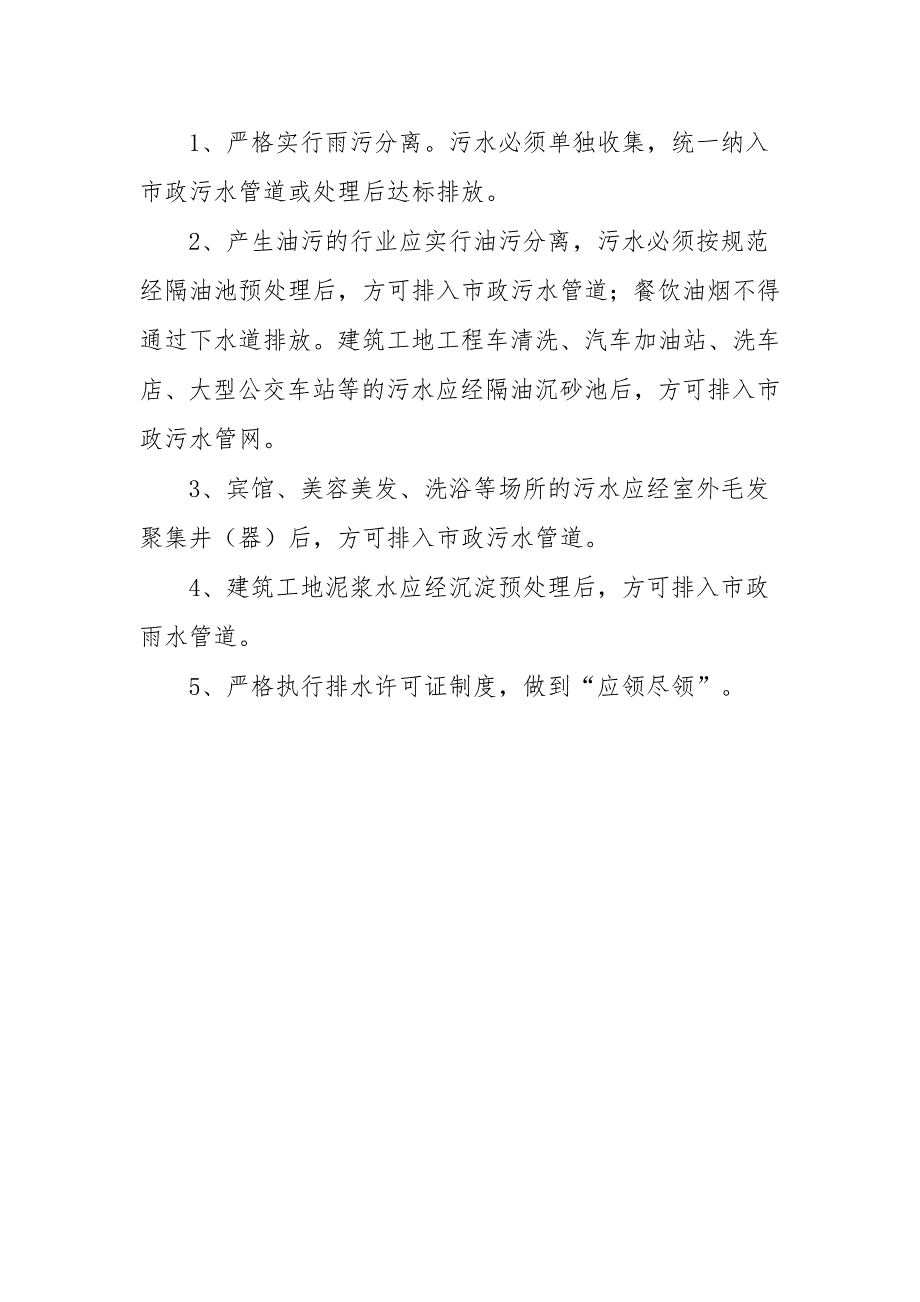 1、严格实行雨污分离。污水必须单独收集，统一纳入
市政污水管道或处理后达标排放。
2、产生油污的行业应实行油污分离，污水必须按规范
经隔油池预处理后，方可排入市政污水管道；餐饮油烟不得
通过下水道排放。建筑工地工程车清洗、汽车加油站、洗车
店、大型公交车站等的污水应经隔油沉砂池后，方可排入市
政污水管网。
3、宾馆、美容美发、洗浴等场所的污水应经室外毛发
聚集井（器）后，方可排入市政污水管道。
4、建筑工地泥浆水应经沉淀预处理后，方可排入市政
雨水管道。
5、严格执行排水许可证制度，做到“应领尽领”。